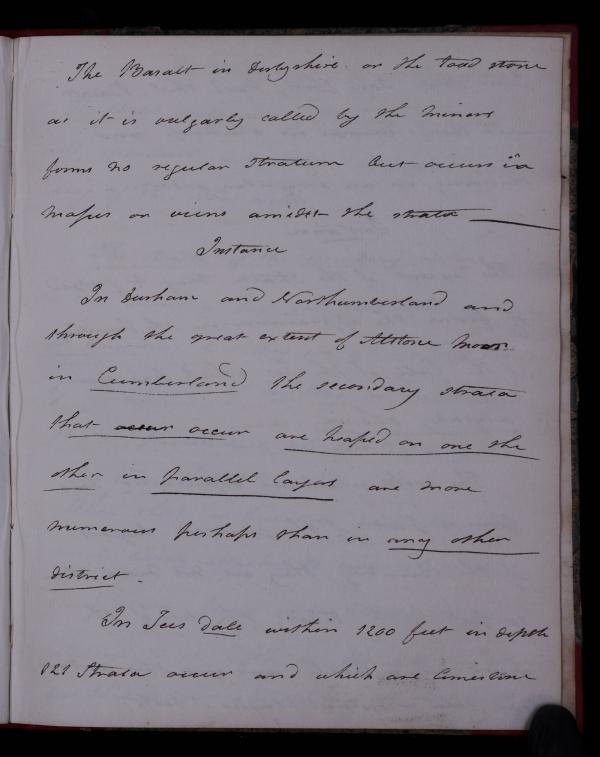 The Basalt in Derbyshire or the Toad stone
as it is vulgarly called by the miners
forms no regular Stratum but occurs in
masses or veins amidst the strata
Instance
In Durham and Northumberland and
through the great extent of Alstone Moor
in Cumberland the secondary strata
that occur occur are heaped on one the
other in parallel layers are more
numerous perhaps than in any other
district.
In Tees dale within 1200 feet in depth
121 Strata occur and which are limestone